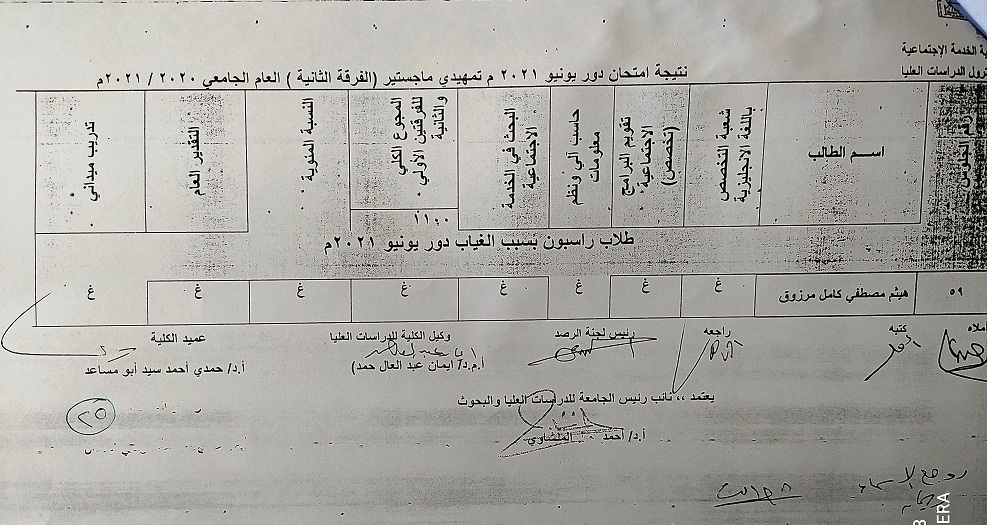 ية الخدمة الاجتماعية
ترول الدراسات العليا
نتيجة امتحان دور يونيو ٢٠٢١ م تمهيدي ماجستير (الفرقة الثانية ) العام الجامعي ٢٠٢٠ / ٢٠٢١م
رقم الجلوس
اسم الطالب
شعبة التخصص باللغة الانجليزية
تقويم البرامج الاجتماعية (تخصص)
حاسب آلي ونظم معلومات
البحث في الخدمة الاجتماعية
المجموع الكلي للفرقتين الأولي والثانية
١١٠٠
النسبة المئوية
التقدير العام
تدريب ميداني
طلاب راسبون بسبب الغياب دور يونيو ٢٠٢١م
٥٩ هيثم مصطفي كامل مرزوق غ غ غ غ غ غ غ غ
املاه كتبه راجعه رئيس لجنة الرصد وكيل الكلية للدراسات العليا عميد الكلية
أ.م.د/ ايمان عبد العال حمد) أ.د/ حمدي أحمد سيد أبو مساعد
يعتمد ،، نائب رئيس الجامعة للدراسات العليا والبحوث
أ.د/ أحمد المنشاوي
٢٥